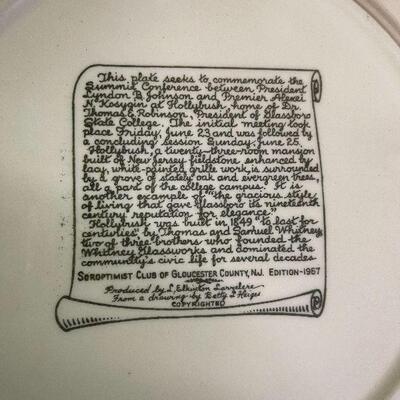 This plate seeks to commemorate the
Summit Conference between President
Lyndon B. Johnson and Premier Alexei
N. Kosygin at Hollybush, home of Dr.
Thomas E. Robinson, President of Glassboro
State College. The initial meeting took
place Friday, June 23 and was followed by
a concluding session Sunday, June 25.
Hollybush, a twenty-three-room mansion
built of New Jersey fieldstone enhanced by
lacy, white-painted grille work, is surrounded
by a grove of stately oak and evergreen trees,
all a part of the college campus. It is
another example of "the gracious style
of living that gave Glassboro its nineteenth
century reputation for elegance."
Hollybush was built in 1849 "to last for
centuries" by Thomas and Samuel Whitney,
two of three brothers who founded the
Whitney Glassworks and dominated the
community's civic life for several decades
SOROPTIMIST CLUB OF GLOUCESTER COUNTY, N.J. EDITION-1967
Produced by L. Elkinton
From a drawing by Betty L. Heiges
COPYRIGHTED